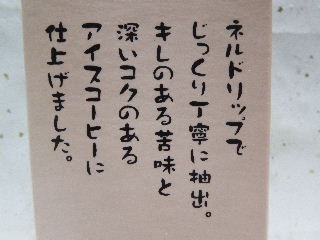 ネルドリップで
じっくり丁寧に抽出。
キレのある苦味と
深いコクのある
アイスコーヒーに
仕上げました。